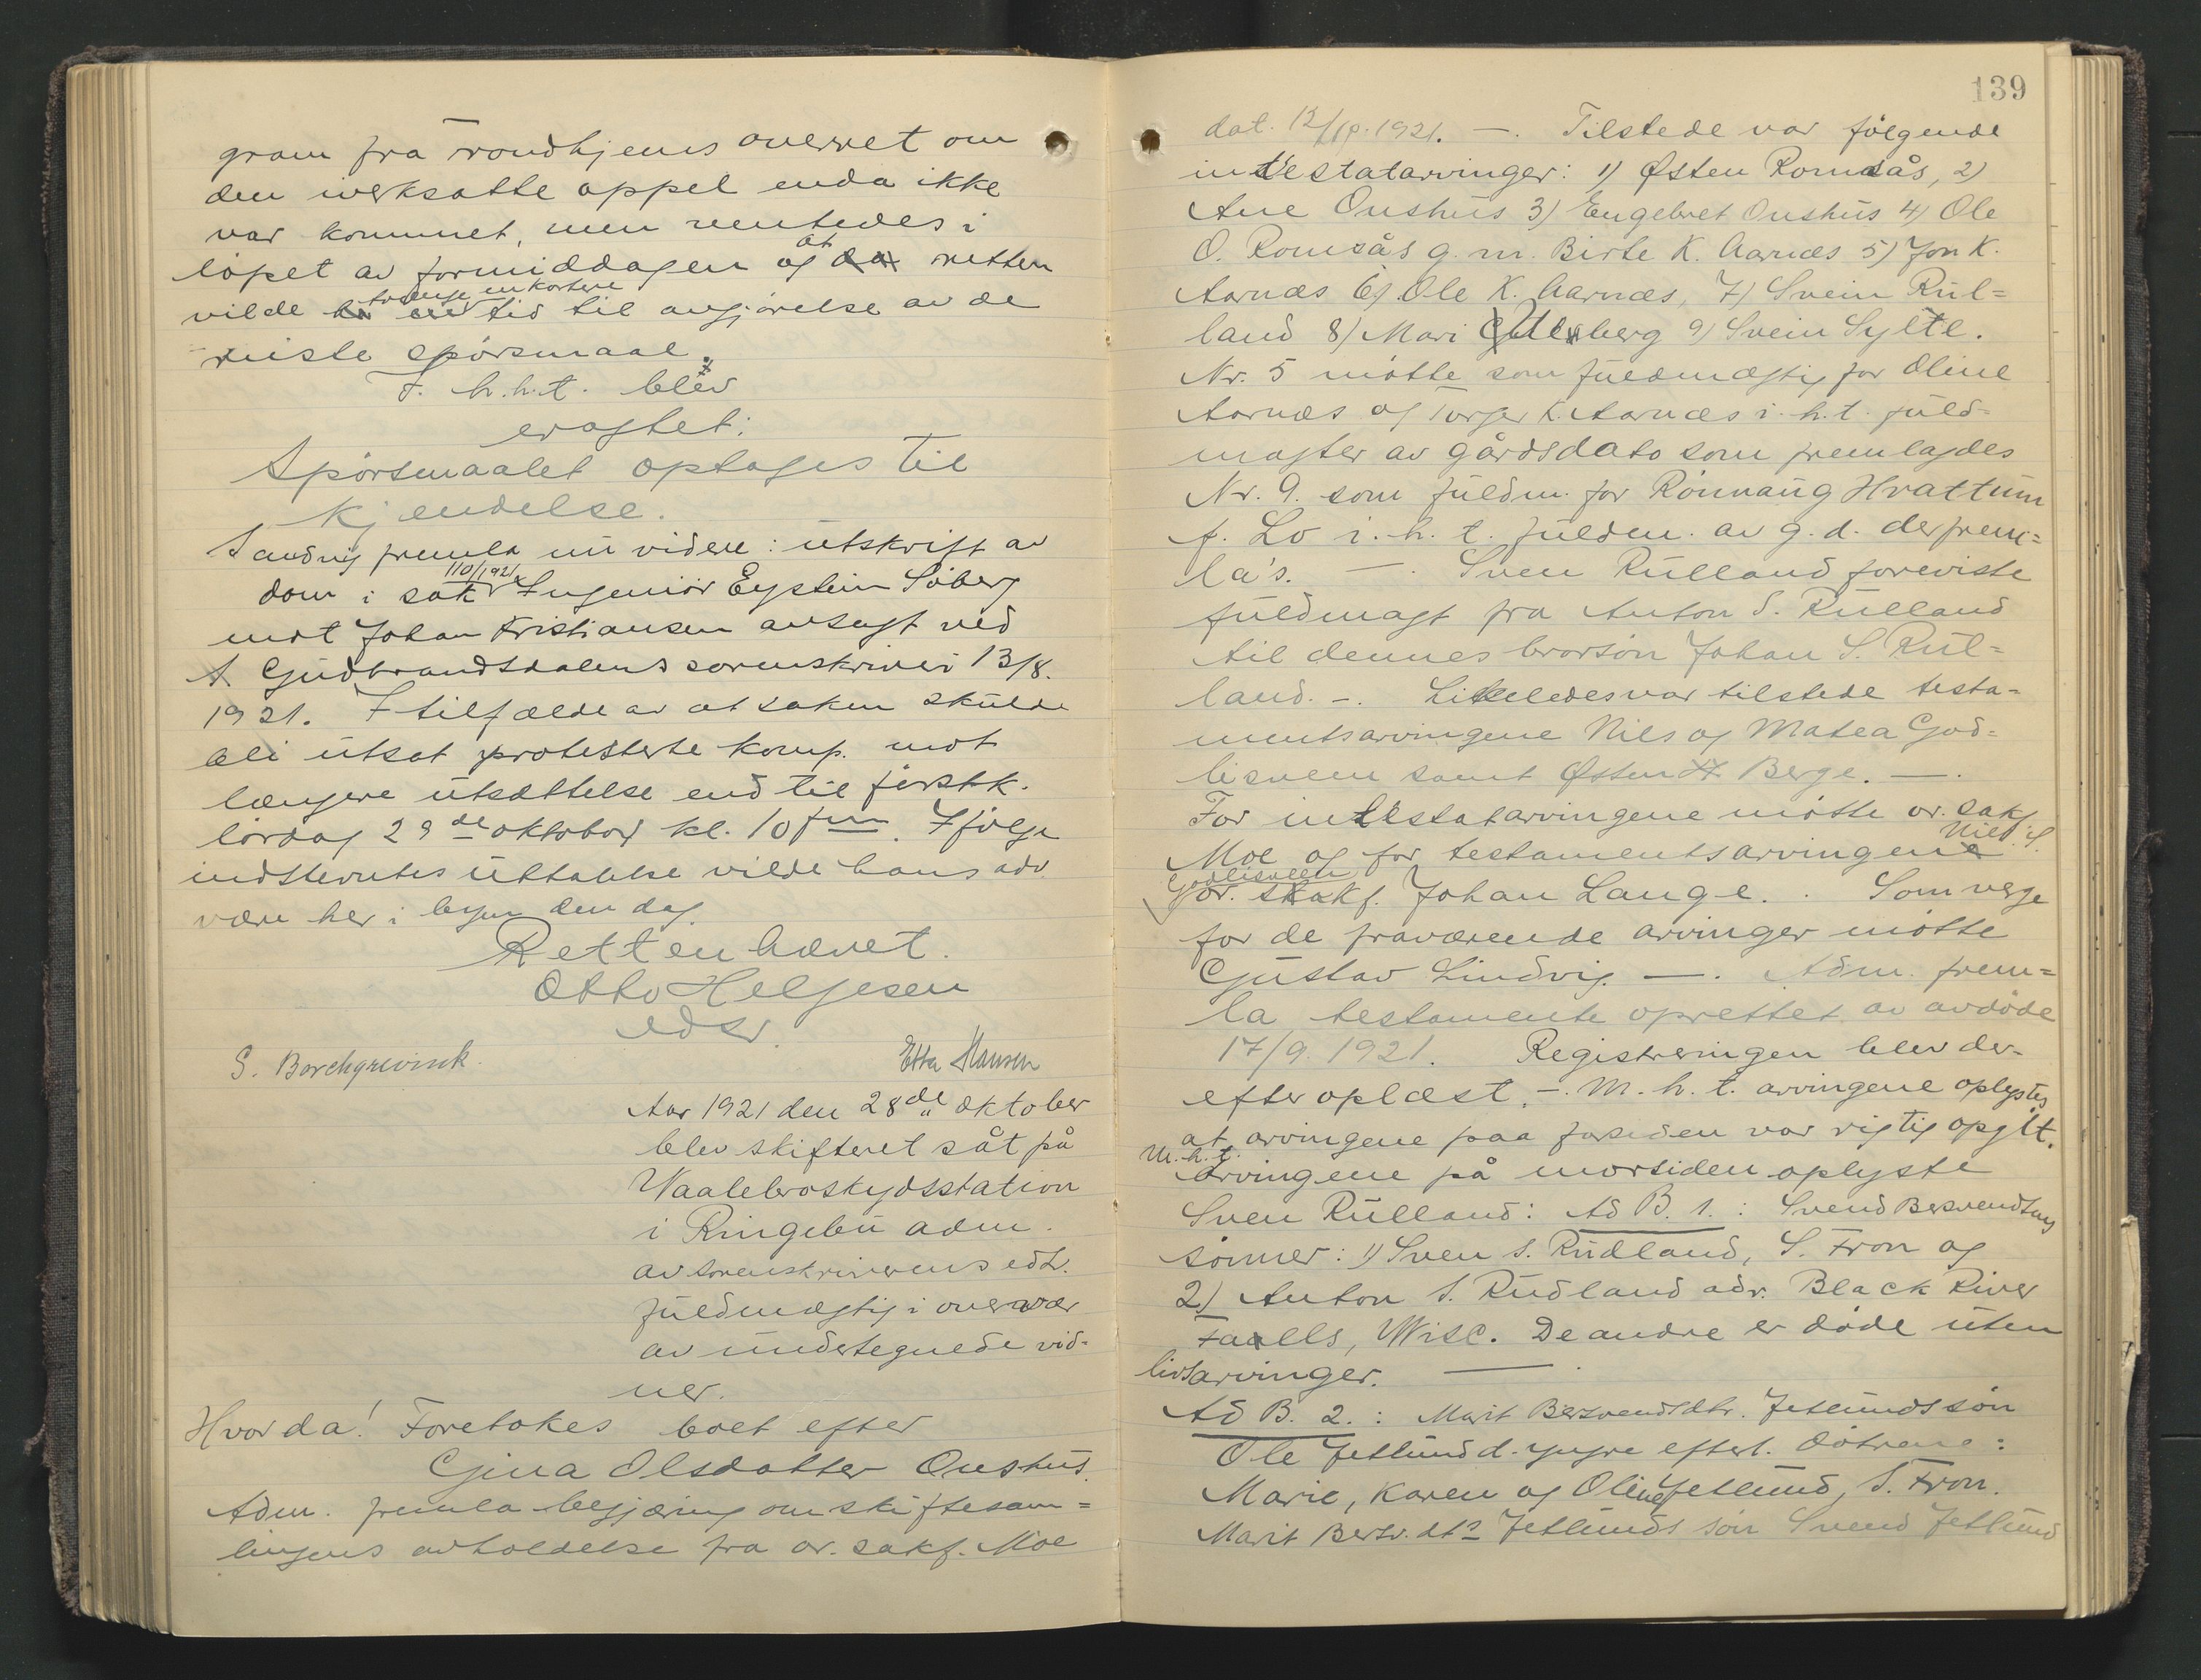 gram fra Trondhjems overret om
den iverksatte appel enda ikke
var kommet, men ventedes i
löpet av formiddagen og at retten
vilde trenge en kortere tid til avgjörelse av de
reiste spörsmaal.
F. h.h.t. blev
eragtet:
Spörsmaalet optages til
kjendelse.
Sandvig fremla nu videre: utskrift av
dom i sak 110/1921 Ingeniör Eystein Söberg
mot Johan Kristiansen avsagt ved
S. Gudbrandsdalens sorenskriveri 13/8.
1921. I tilfælde av at saken skulde
bli utsat protesterte komp. mot
længere utsættelse end til förstk.
lördag 29de oktober kl. 10 fm. Ifölge
indstevntes uttalelse vilde hans adv
være her i byen den dag.
Retten hævet.
Otto Helgesen
edsv.
S. Borchgrevink. Etta Hansen
Aar 1921 den 28de oktober
blev skifteret sat på
Vaalebroskydsstation
i Ringebu adm.
av sorenskriverens eds.
fuldmægtig i overvær
av undertegnede vid-
ner.
Hvorda! Foretokes boet efter
Gina Olsdatter Onshus.
Adm. fremla begjæring om skiftesam=
lingens avholdelse fra or. sakf. Moe
139
dat. 12/10.1921. —. Tilstede var fölgende
intestatarvinger: 1) Østen Romsås, 2)
Ane Onshus 3) Engebret Onshus 4) Ole
O. Romsås g. m. Birte K. Aarnæs 5) Jon K.
Aarnæs 6) Ole K. Aarnæs, 7) Svein Rul=
land 8) Mari berg 9) Svein Sylte.
Nr. 5 mötte som fuldmægtig for Oline
Aarnæs og Torger K. Aarnæs i. h. t. fuld=
magter av gårdsdato som fremlagdes
Nr. 9. som fuldm. for Rönnaug Hvattum
f. Lo i. h. t. fuldm. av g. d. der frem=
la's. —. Sven Rulland foreviste
fuldmagt fra Anton S. Rulland
til dennes brorsön Johan S. Rul=
land. —. Likeledes var tilstede testa=
mentsarvingene Nils og Matea God=
lisveen samt Østen Berge. —.
For intestatarvingene mötte or. sakf.
Moe og for testamentsarvingen Nils S.
Godlisveen or. sakf. Johan Lange. . Som verge
for de fraværende arvinger mötte
Gustav Lindvig. —. Adm. frem=
la testamente oprettet av avdöde
17/9. 1921. Registreringen blev der-
efter oplæst. —. M. h. t. arvingene oplystes
at arvingene paa farsiden var rigtig opgit.
M. h. t. arvingene på morsiden oplyste
Sven Rulland: Ad B. 1. : Svend Bersvendsens
sönner: 1) Sven S. Rudland, S. Fron og
2) Anton S. Rudland adr. Black River
Faells, Wisc. De andre er döde uten
livsarvinger. —.
Ad B. 2. : Marit Bersvendsdtr. Jetlunds sön
Ole Jetlund d. yngre efterl. dötrene:
Marie, Karen og Oline Jetlund, S. Fron.
Marit Bersv. dtr Jetlunds sön Svend Jetlund